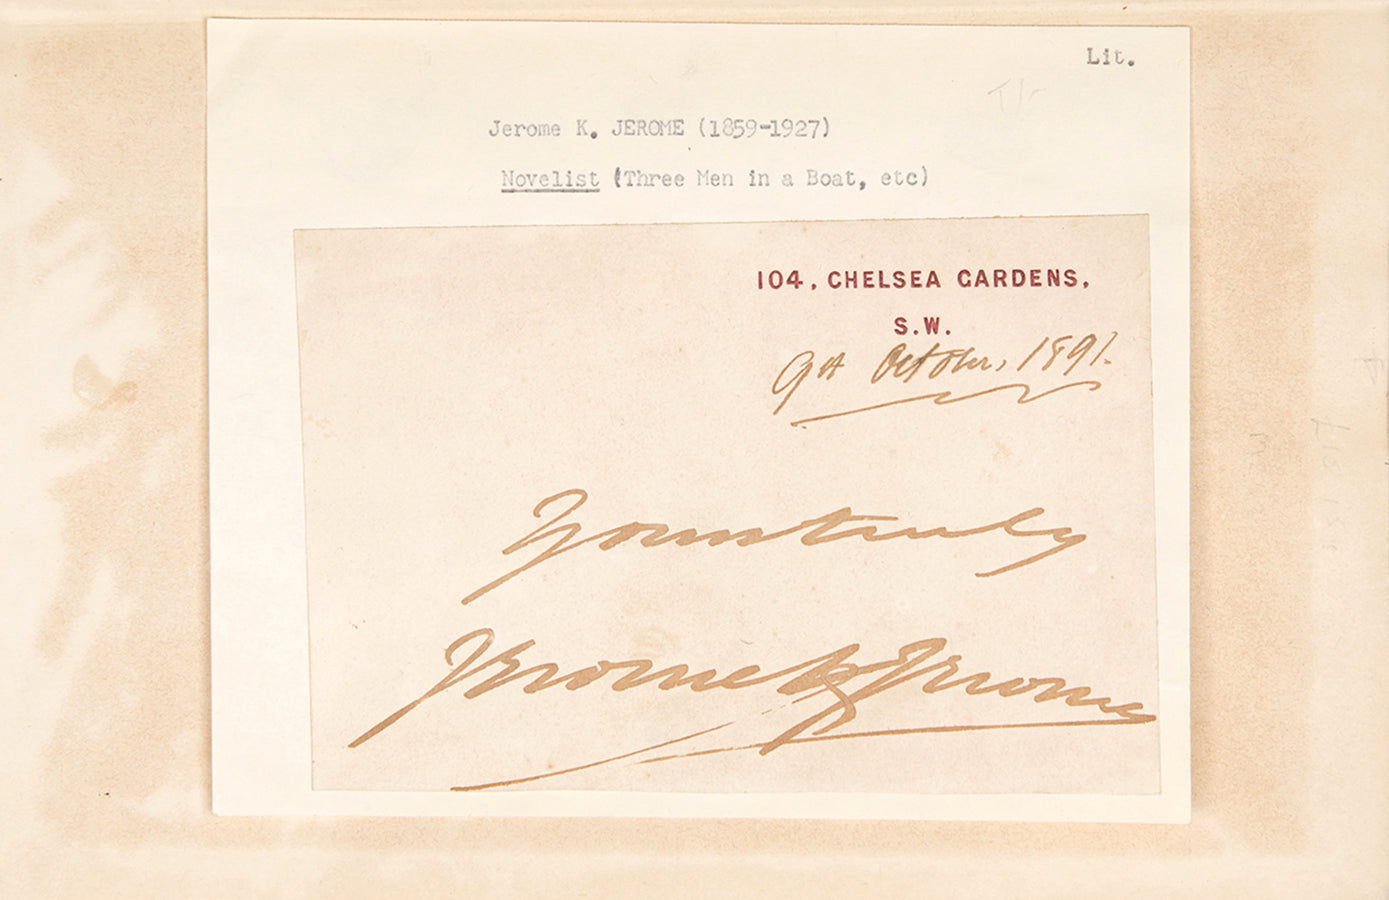 Lit.
Jerome K. JEROME (1859-1927)
Novelist (Three Men in a Boat, etc)
104, CHELSEA GARDENS,
S.W.
9th October, 1891.
Yours truly
Jerome K Jerome